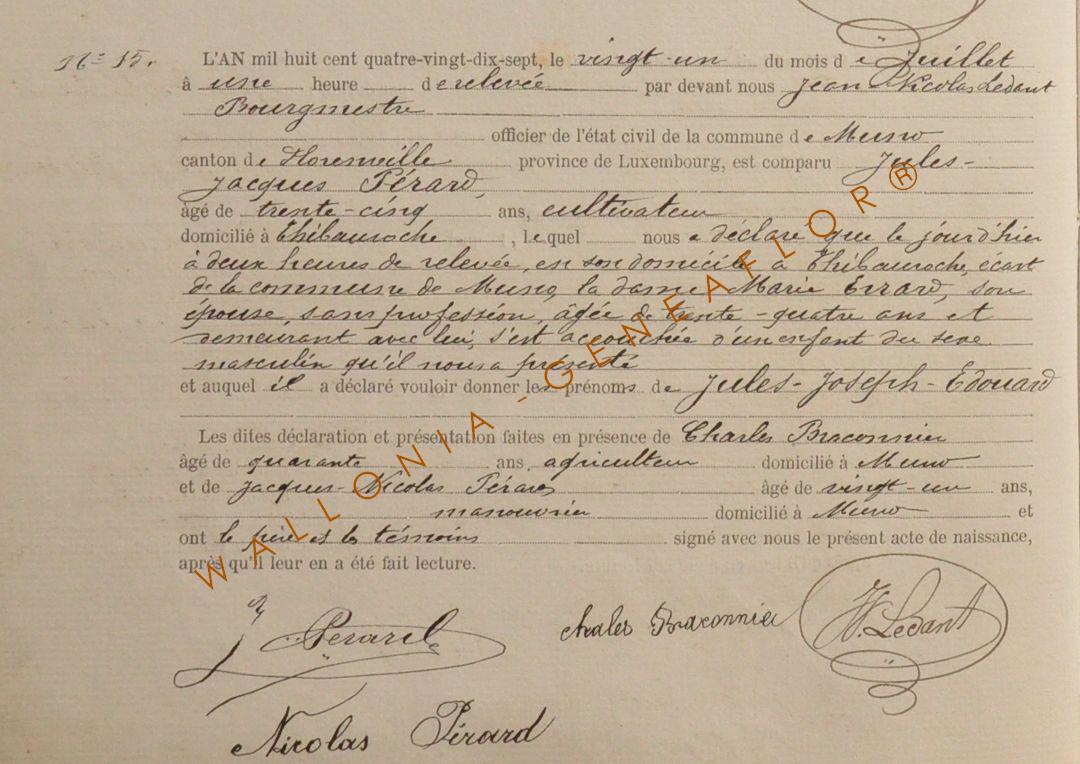 N° 15.
L'AN mil huit cent quatre-vingt-dix-sept, le vingt-un du mois de Juillet
à une heure de relevée par devant nous Jean Nicolas Ledant
Bourgmestre
officier de l'état civil de la commune de Muno
canton de Florenville province de Luxembourg, est comparu Jules-
Jacques Pérard,
âgé de trente-cinq ans, cultivateur
domicilié à Thibauroche, lequel nous a déclaré que le jour d'hier
à deux heures de relevée, en son domicile à Thibauroche, écart
de la commune de Muno, la dame Marie Errard, son
épouse, sans profession, âgée de trente-quatre ans et
demeurant avec lui, s'est accouchée d'un enfant du sexe
masculin qu'il nous a présenté
et auquel il a déclaré vouloir donner les prénoms de Jules-Joseph-Edouard
Les dites déclaration et présentation faites en présence de Charles Braconnier
âgé de quarante ans, agriculteur domicilié à Muno
et de Jacques-Nicolas Pérard âgé de vingt-un ans,
manouvrier domicilié à Muno et
ont le père et les témoins signé avec nous le présent acte de naissance,
après qu'il leur en a été fait lecture.
J Pérard Charles Braconnier N. Ledant
Nicolas Pérard
WALLONIA-GENEAFLOR®